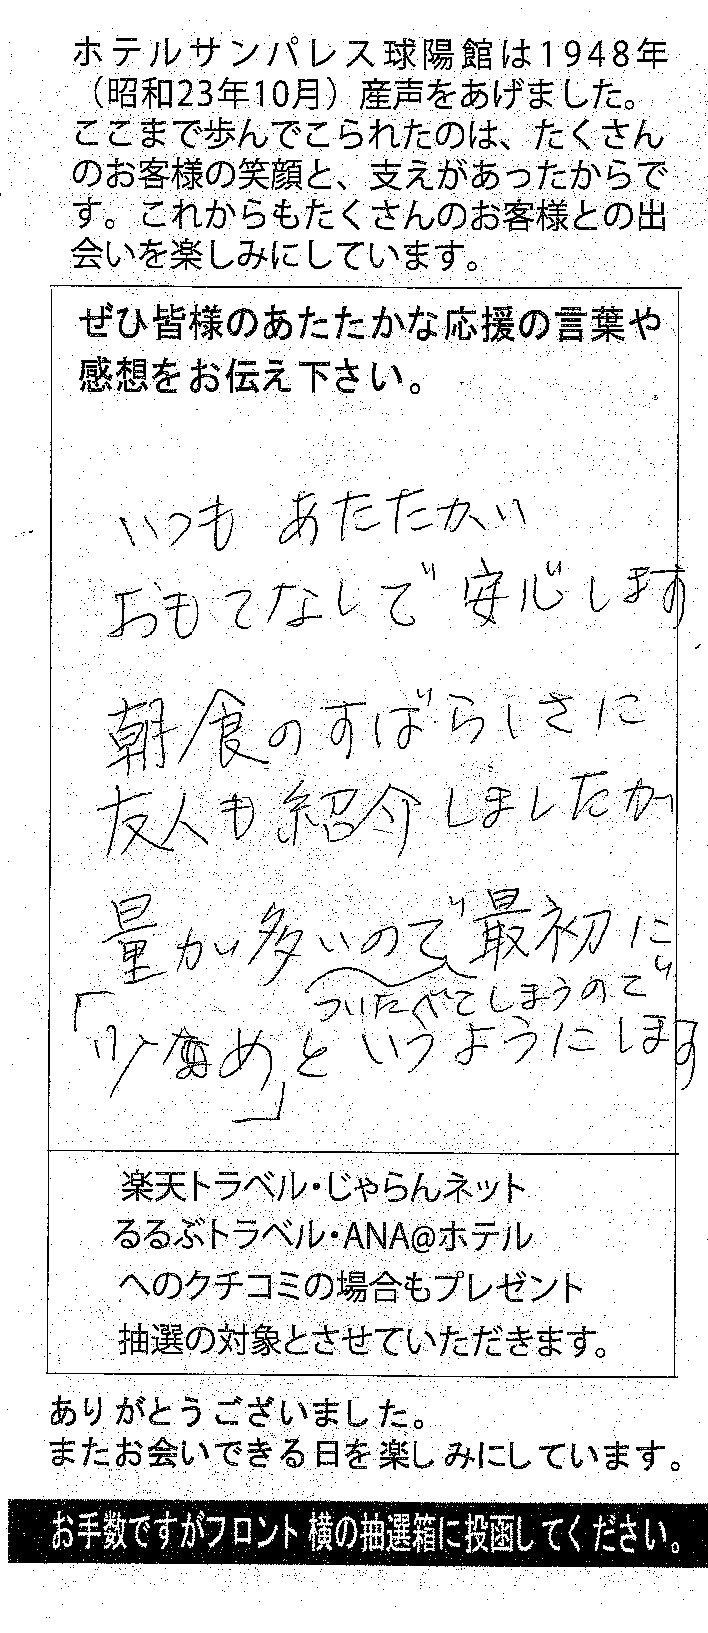 ホテルサンパレス球陽館は1948年
（昭和23年10月）産声をあげました。
ここまで歩んでこられたのは、たくさん
のお客様の笑顔と、支えがあったからで
す。これからもたくさんのお客様との出
会いを楽しみにしています。
ぜひ皆様のあたたかな応援の言葉や
感想をお伝え下さい。
いつも あたたかい
おもてなしで 安心します
朝食のすばらしさに
友人も紹介しましたが
量が多いので最初に
ついたべてしまうので
「少なめ」というようにします
楽天トラベル・じゃらんネット
るるぶトラベル・ANA@ホテル
へのクチコミの場合もプレゼント
抽選の対象とさせていただきます。
ありがとうございました。
またお会いできる日を楽しみにしています。
お手数ですがフロント横の抽選箱に投函してください。